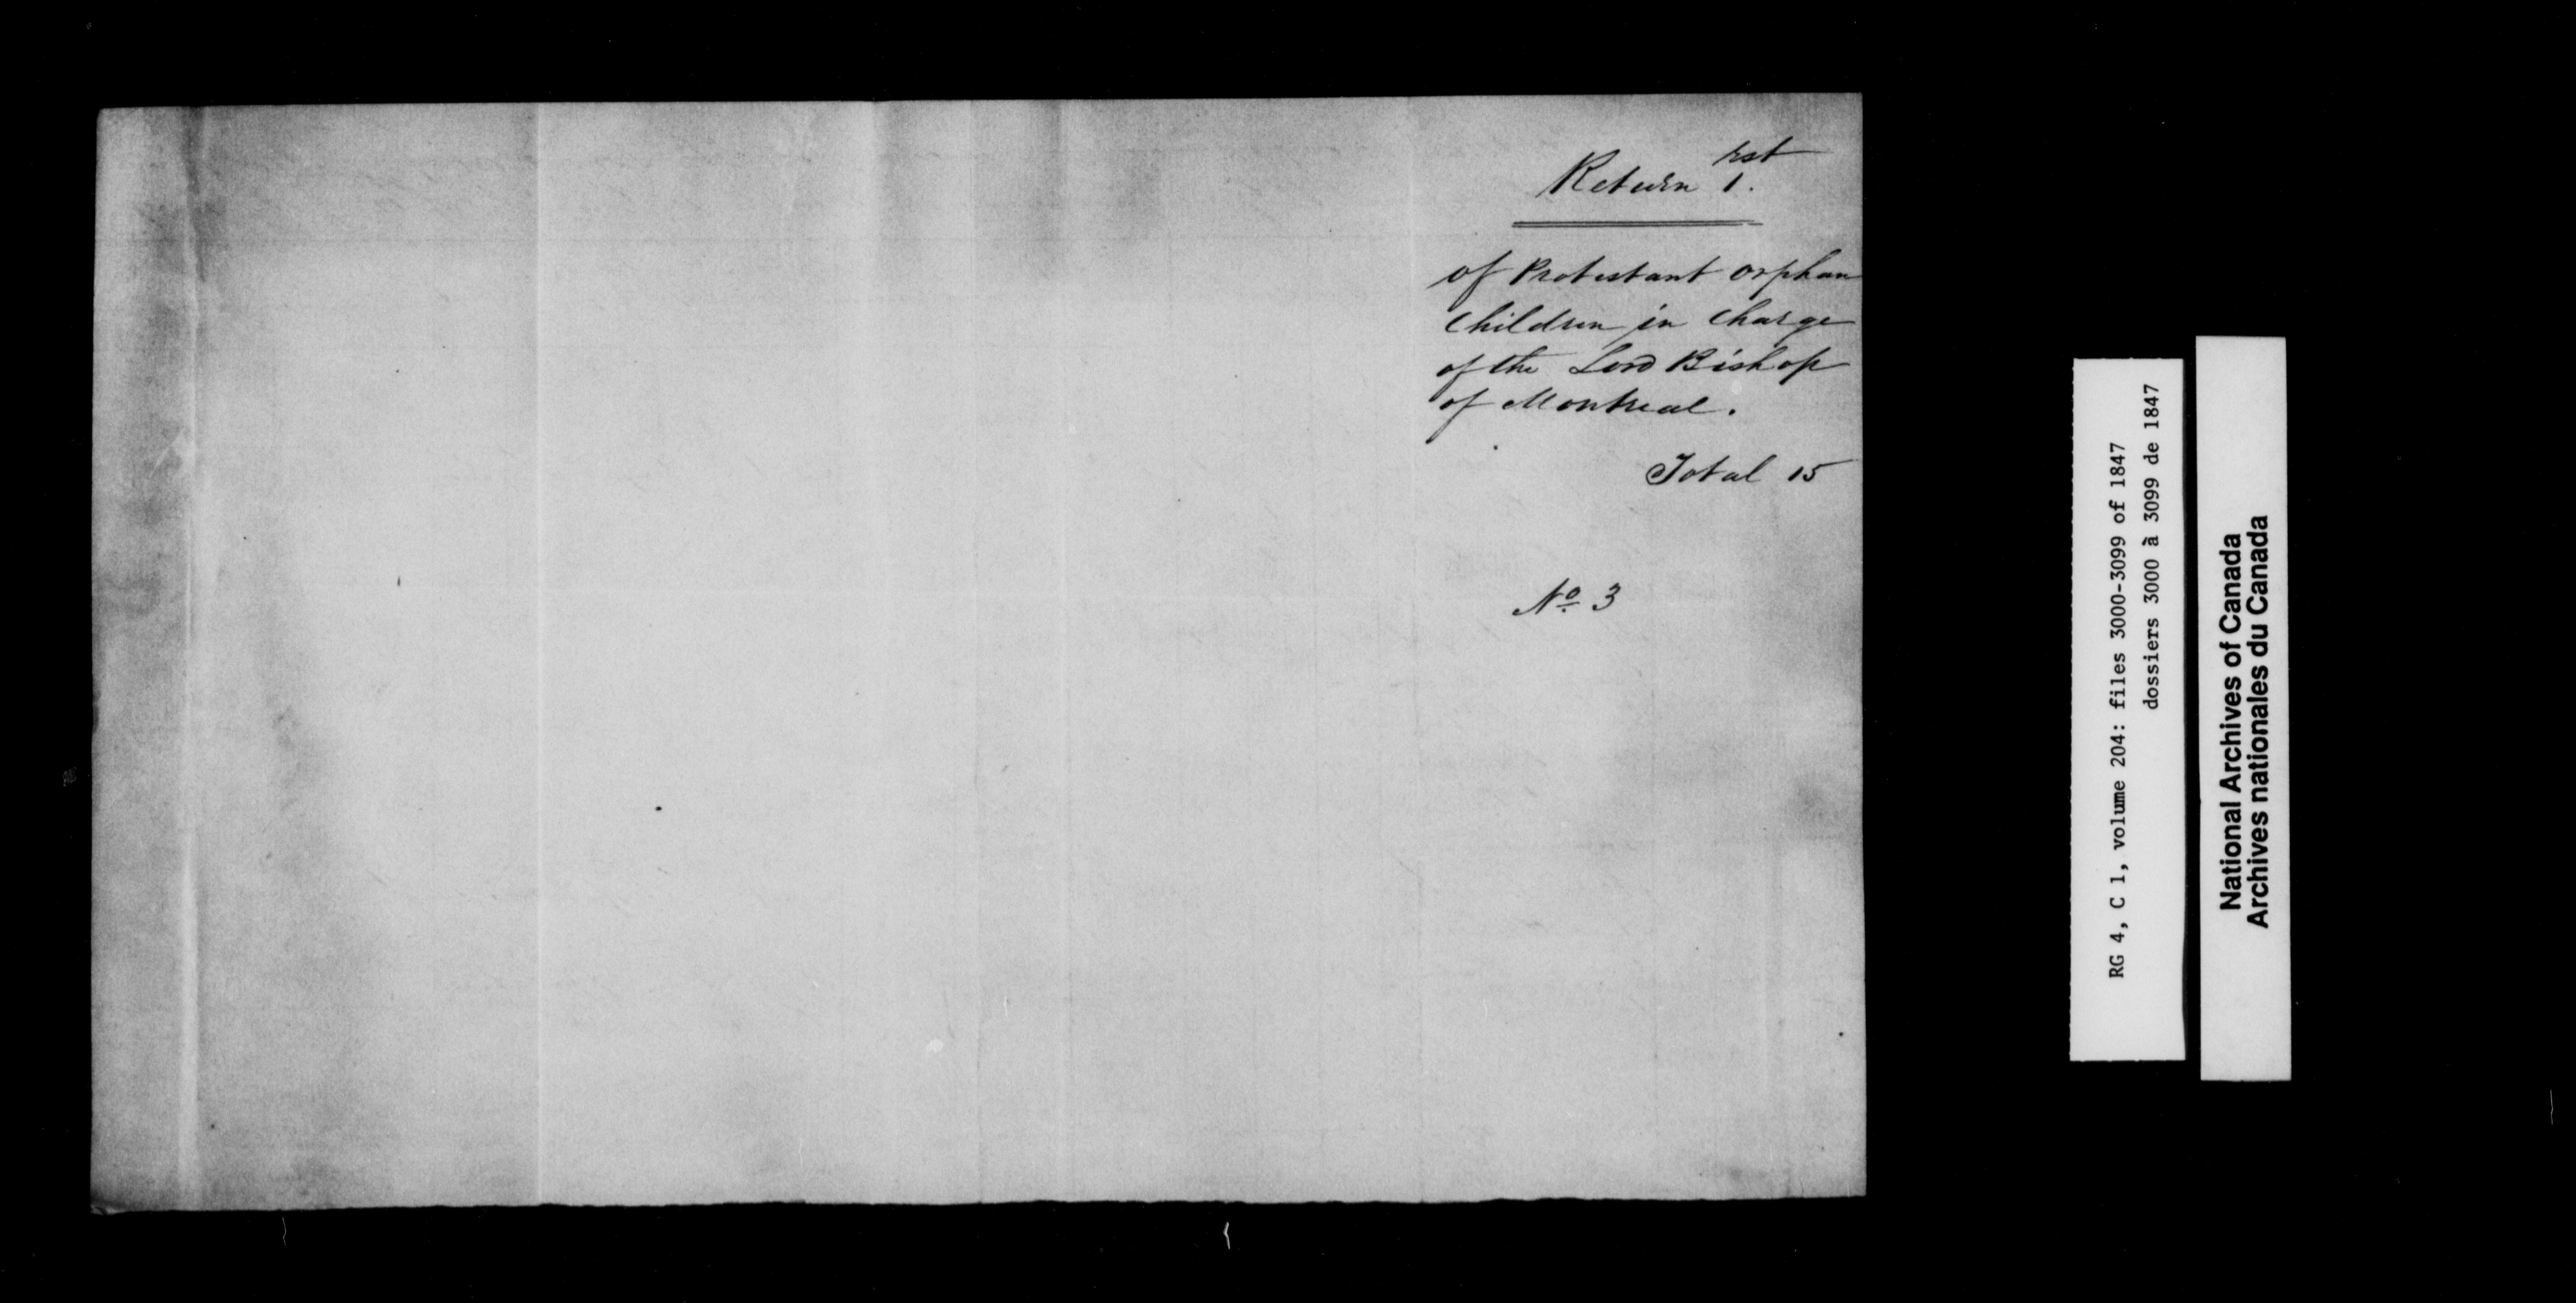 Return 1.rst
of Protestant orphan
Children in Charge
of the Lord Bishop
of Montreal.
Total 15
No. 3
RG 4, C 1, volume 204: files 3000-3099 of 1847
dossiers 3000 à 3099 de 1847
National Archives of Canada
Archives nationales du Canada